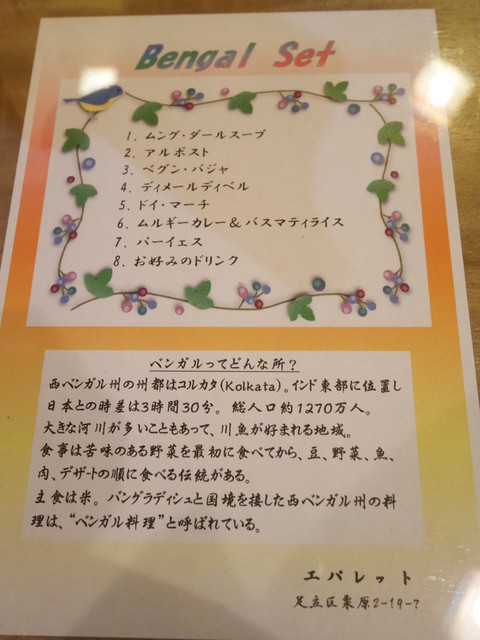 Bengal Set
1. ムング・ダールスープ
2. アルポスト
3. ベグン・バジャ
4. ディメールディベル
5. ドイ・マーチ
6. ムルギーカレー＆バスマティライス
7. パーイェス
8. お好みのドリンク
ベンガルってどんな所？
西ベンガル州の州都はコルカタ(Kolkata)。インド東部に位置し
日本との時差は3時間30分。総人口約1270万人。
大きな河川が多いこともあって、川魚が好まれる地域。
食事は苦味のある野菜を最初に食べてから、豆、野菜、魚、
肉、デザートの順に食べる伝統がある。
主食は米。バングラディシュと国境を接した西ベンガル州の料
理は、“ベンガル料理”と呼ばれている。
エバレット
足立区栗原2-19-7